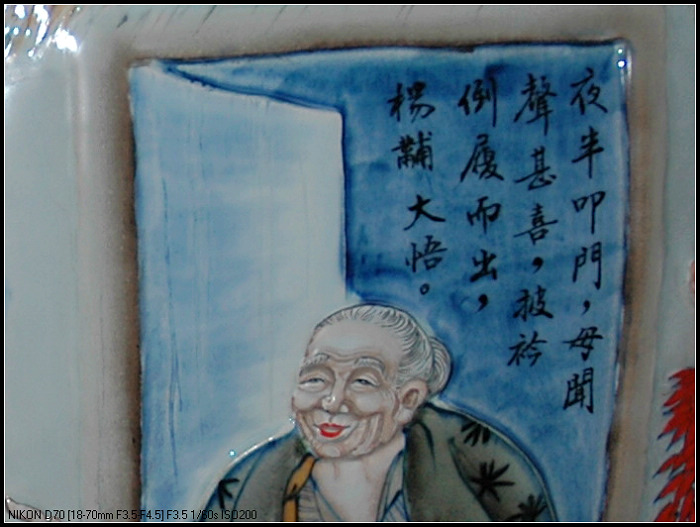 夜半叩門，母聞
聲甚喜，披衿
倒履而出，
楊黼大悟。
NIKON D70 [18-70mm F3.5-F4.5] F3.5 1/60s ISO200